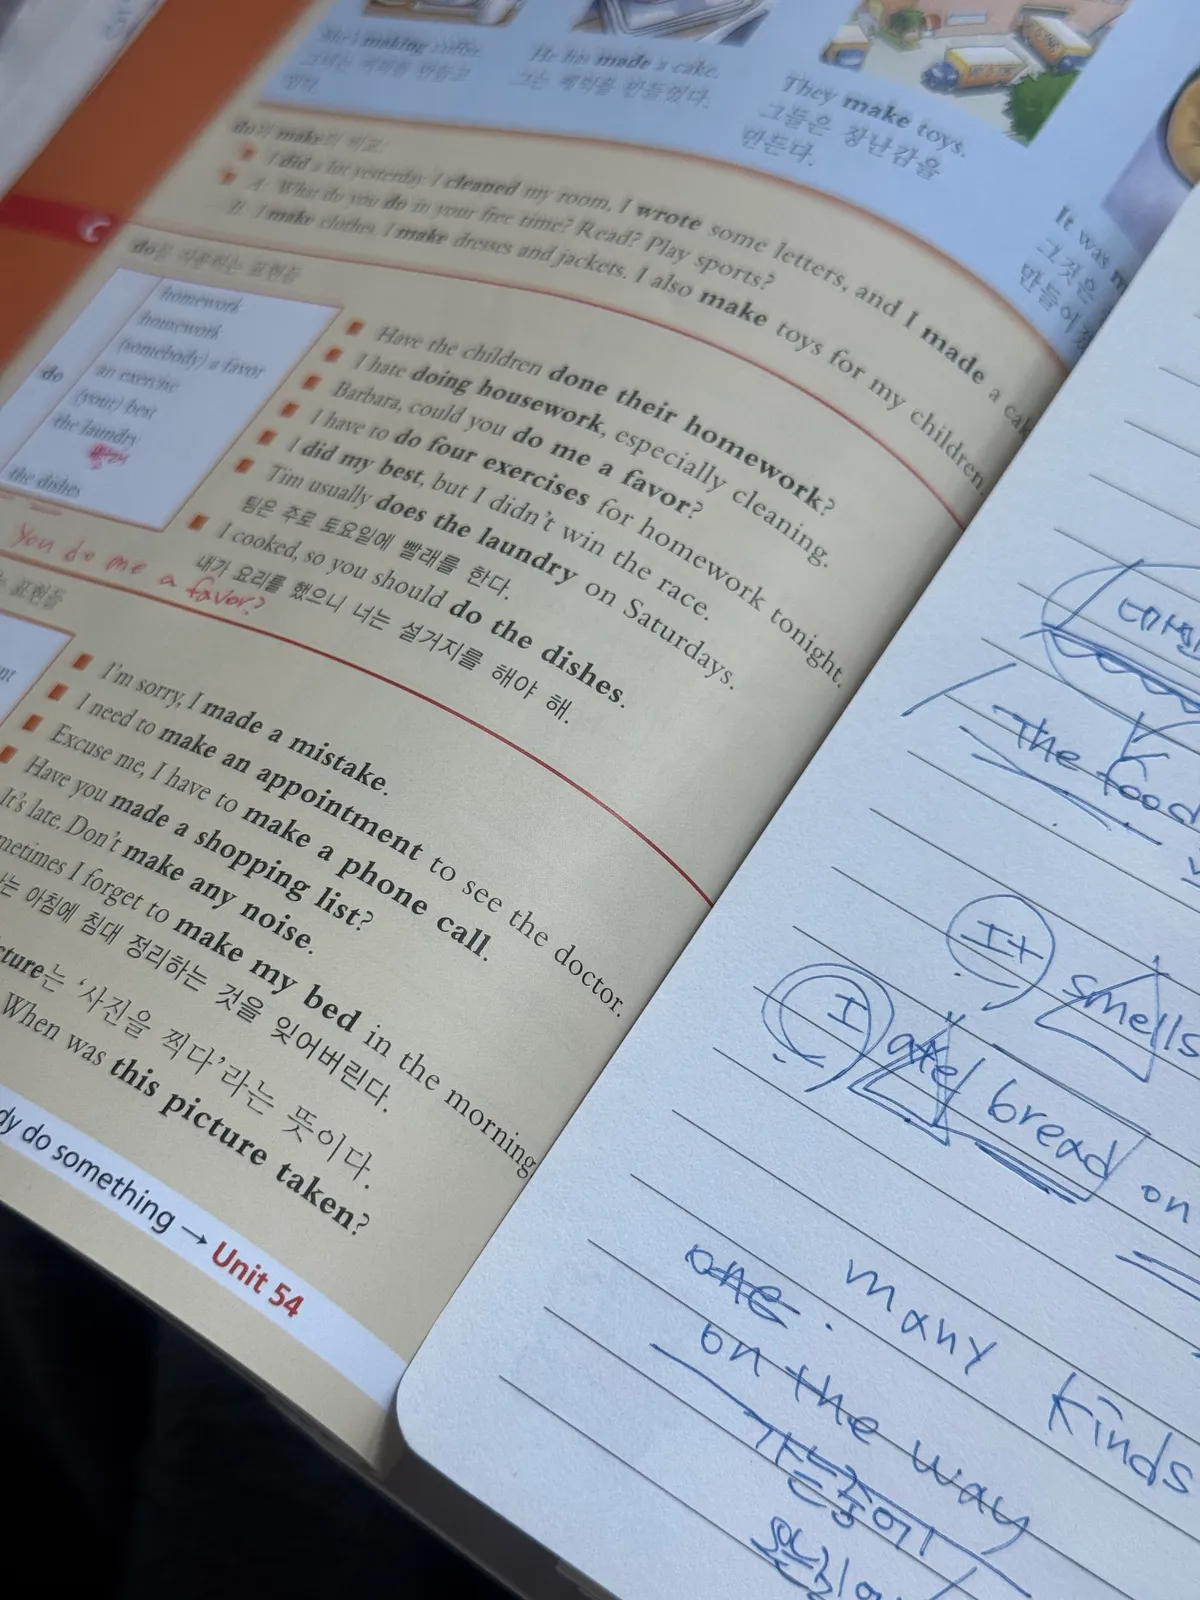 She's making coffee.
그녀는 커피를 만들고
있다.
He has made a cake.
그는 케익을 만들었다.
They make toys.
그들은 장난감을
만든다.
It was m
그것은
만들어
do와 make의 비교:
I did a lot yesterday. I cleaned my room, I wrote some letters, and I made a cake
A: What do you do in your free time? Read? Play sports?
B: I make clothes. I make dresses and jackets. I also make toys for my children.
C
do를 사용하는 표현들
do
homework
housework
(somebody) a favor
an exercise
(your) best
the laundry
the dishes
Have the children done their homework?
I hate doing housework, especially cleaning.
Barbara, could you do me a favor?
I have to do four exercises for homework tonight.
I did my best, but I didn't win the race.
Tim usually does the laundry on Saturdays.
팀은 주로 토요일에 빨래를 한다.
I cooked, so you should do the dishes.
내가 요리를 했으니 너는 설거지를 해야 해.
You do me a favor?
는 표현들
I'm sorry, I made a mistake.
I need to make an appointment to see the doctor.
Excuse me, I have to make a phone call.
Have you made a shopping list?
It's late. Don't make any noise.
metimes I forget to make my bed in the morning
는 아침에 침대 정리하는 것을 잊어버린다.
cture는 '사진을 찍다'라는 뜻이다.
When was this picture taken?
dy do something → Unit 54
The food
It smells
I ate bread on
one. many kinds
on the way
가는중에